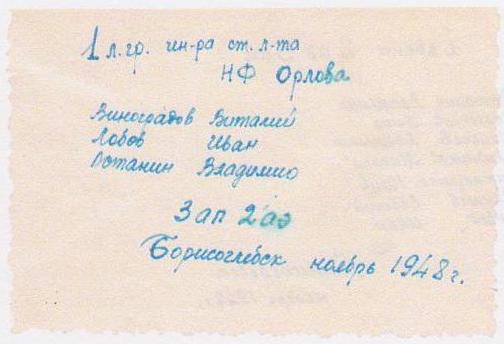 1 л. гр. ин-ра ст. л-та
НФ Орлова
Виноградов Виталий
Лобов Иван
Потанин Владимир
Зап 2 аэ
Борисоглебск ноябрь 1948 г.